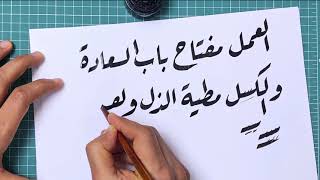 العمل مفتاح باب السعادة
والكسل مطية الذل